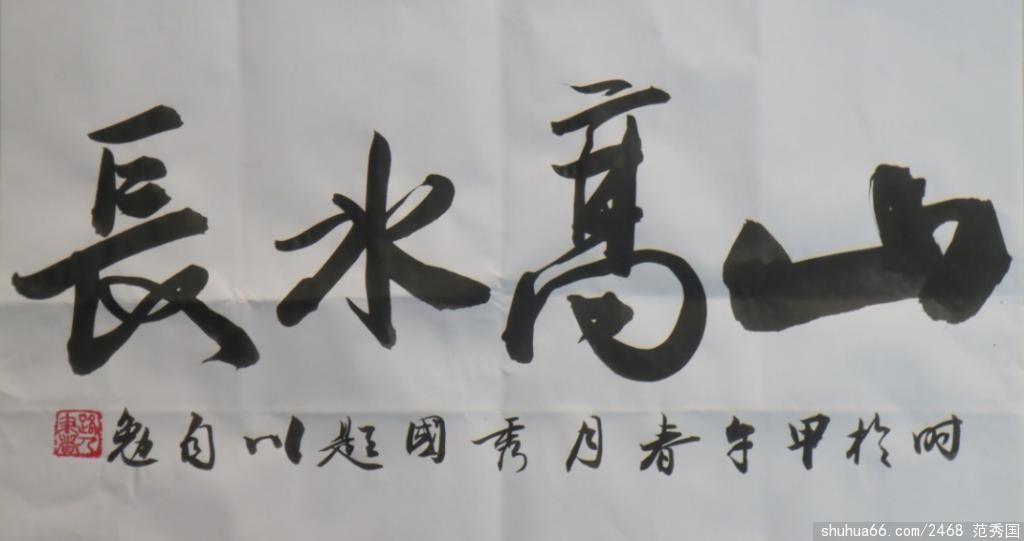 山高水長
时於甲午春月秀國題以自勉
shuhua66.com/2468 范秀国